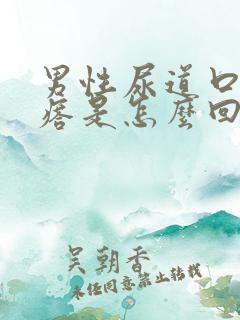 男性尿道口
痞是怎麼回
吴朝香
未经同意禁止转载